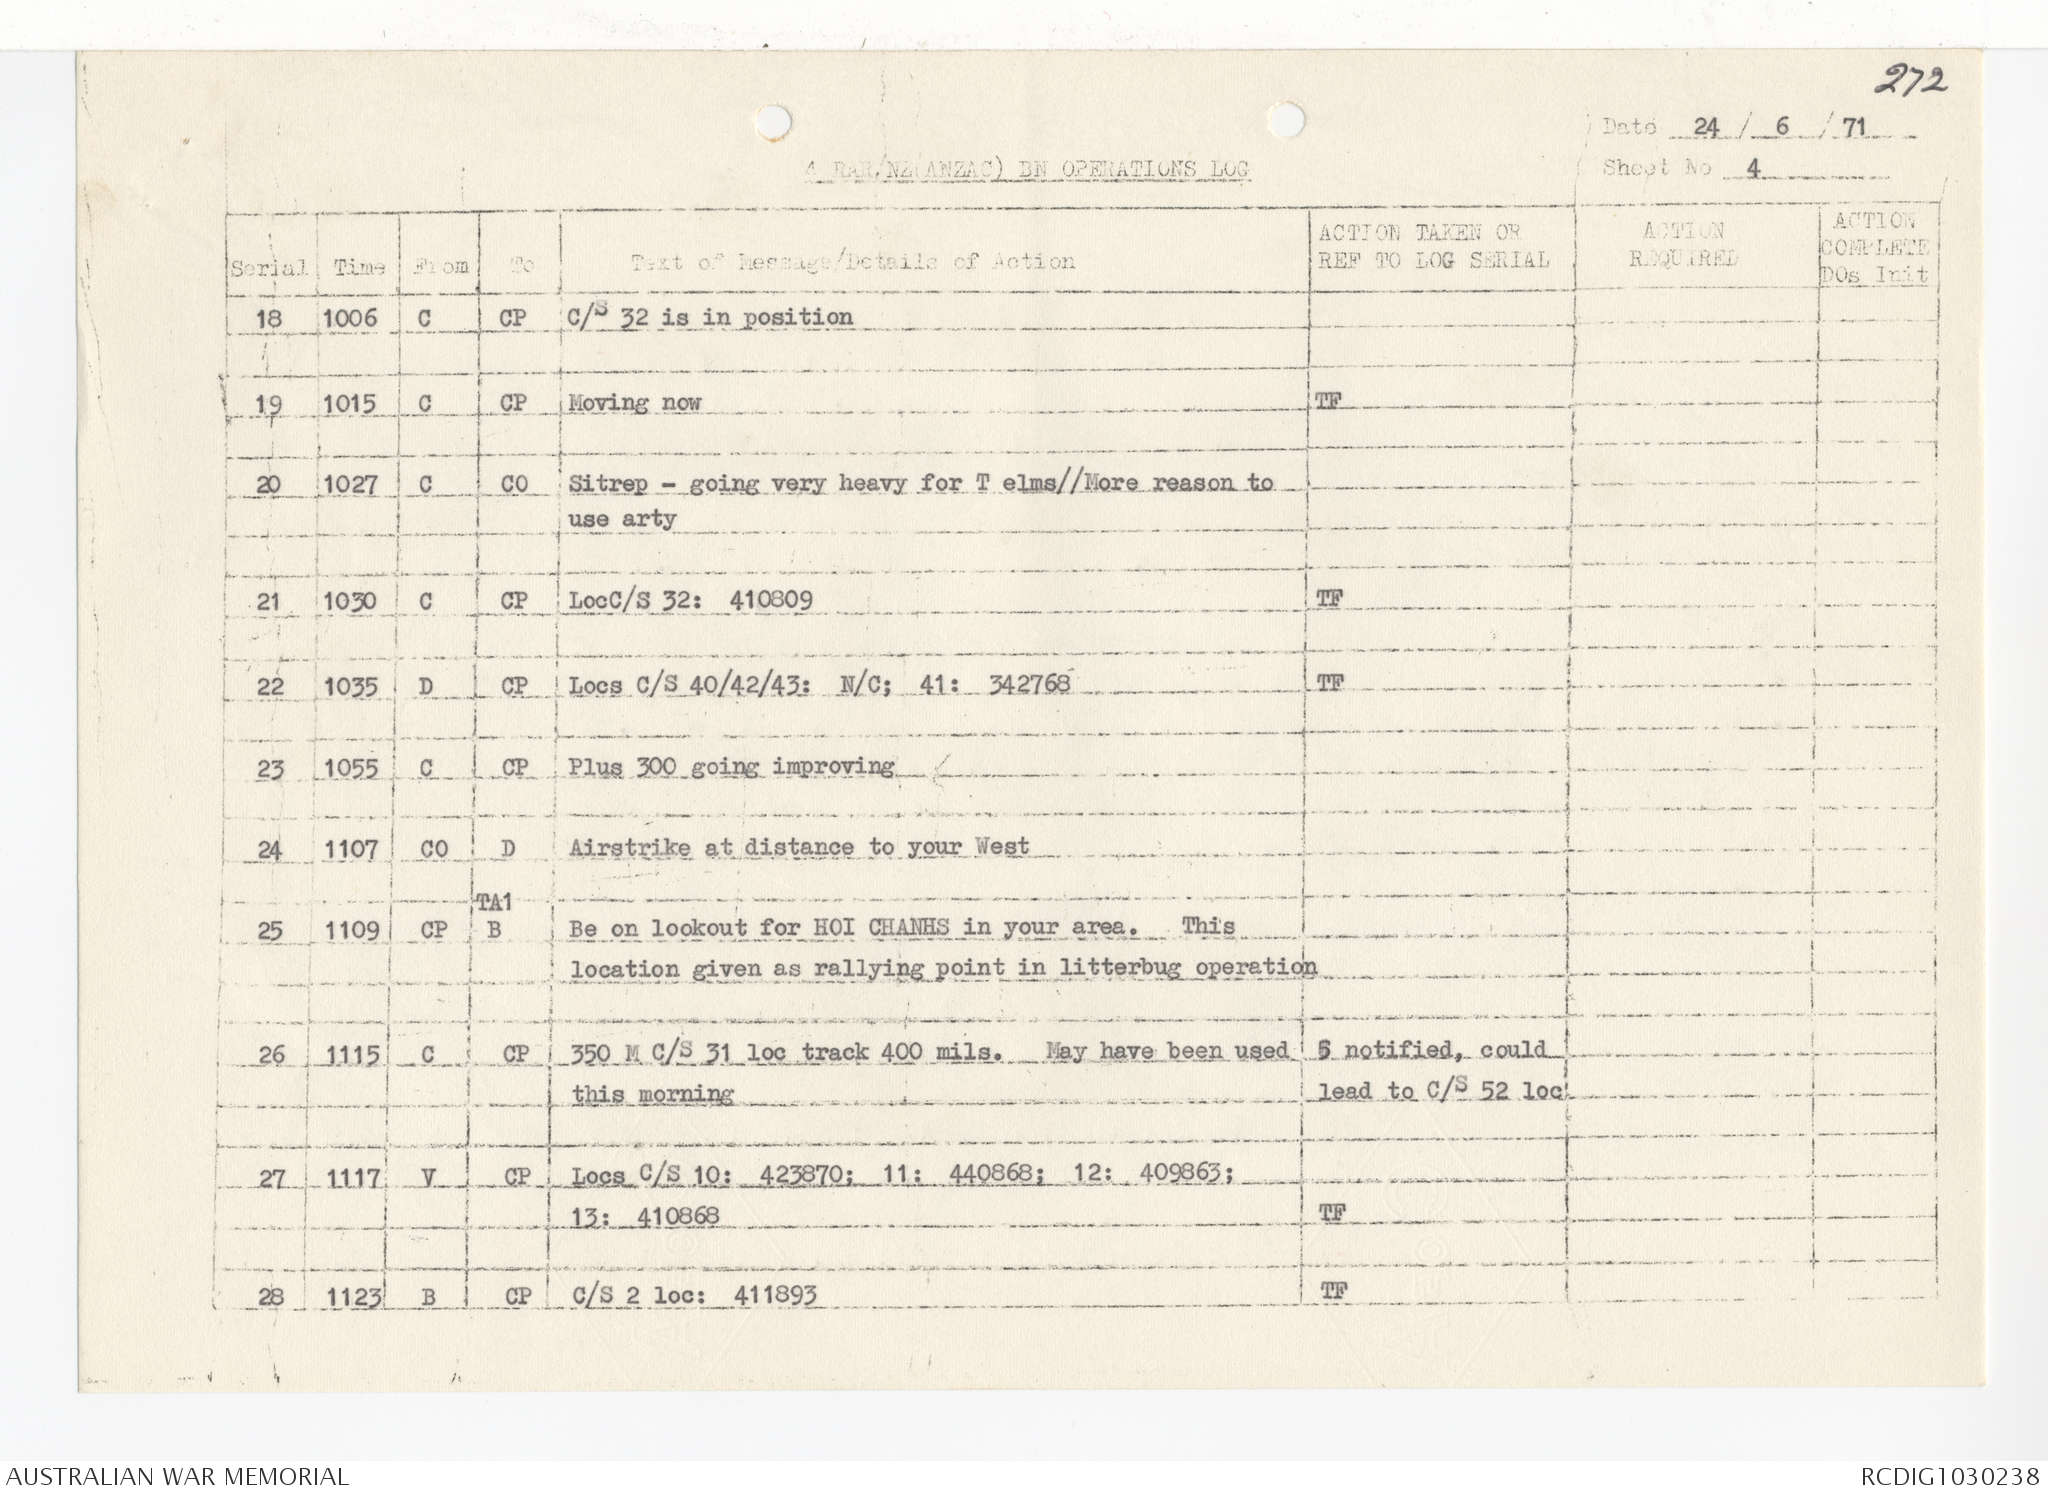 272
Date 24 / 6 / 71
4 RAR/NZ(ANZAC) BN OPERATIONS LOG
Sheet No 4
Serial Time From To Text of Message/Details of Action ACTION TAKEN OR REF TO LOG SERIAL ACTION REQUIRED ACTION COMPLETE DOs Init
18 1006 C CP C/S 32 is in position
19 1015 C CP Moving now TF
20 1027 C CO Sitrep - going very heavy for T elms//More reason to
use arty
21 1030 C CP LocC/S 32: 410809 TF
22 1035 D CP Locs C/S 40/42/43: N/C; 41: 342768 TF
23 1055 C CP Plus 300 going improving
24 1107 CO D Airstrike at distance to your West
TA1
25 1109 CP B Be on lookout for HOI CHANHS in your area. This
location given as rallying point in litterbug operation
26 1115 C CP 350 M C/S 31 loc track 400 mils. May have been used 5 notified, could
this morning lead to C/S 52 loc
27 1117 V CP Locs C/S 10: 423870; 11: 440868; 12: 409863;
13: 410868 TF
28 1123 B CP C/S 2 loc: 411893 TF
AUSTRALIAN WAR MEMORIAL RCDIG1030238